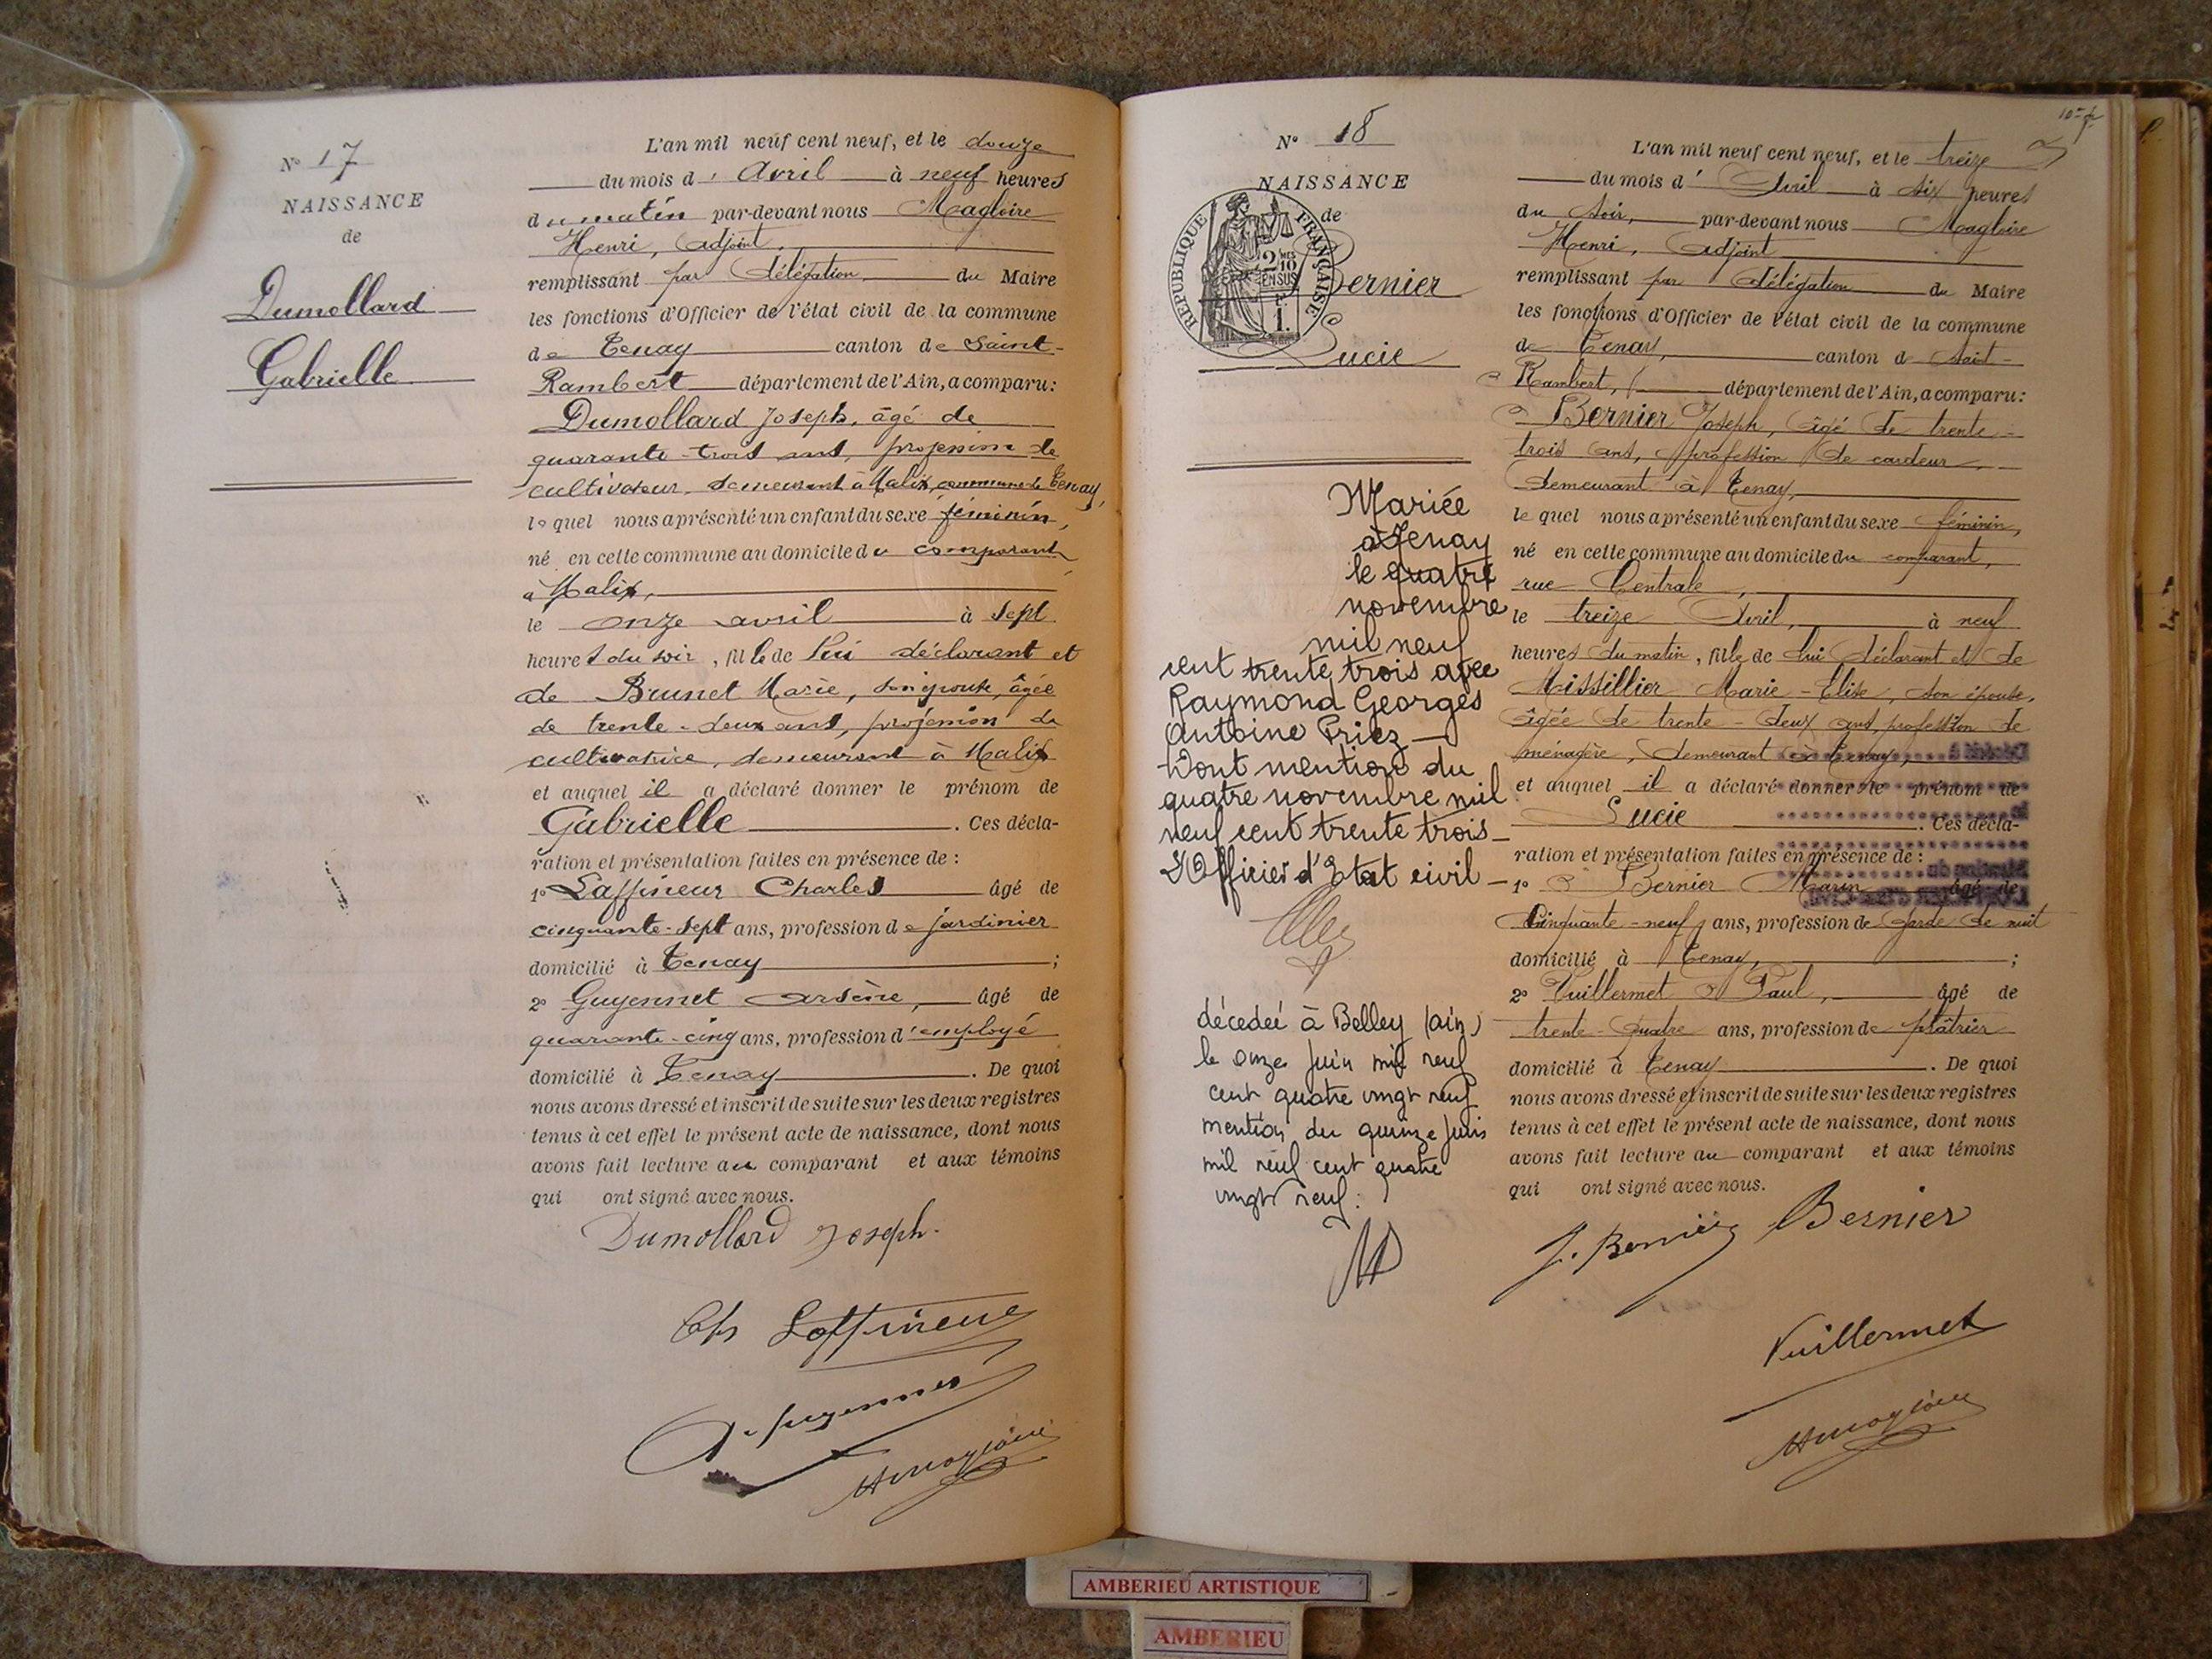 N° 17
NAISSANCE
de
Dumollard
Gabrielle
L'an mil neuf cent neuf, et le douze
du mois d' Avril à neuf heures
du matin par-devant nous Magloire
Henri, adjoint,
remplissant par délégation du Maire
les fonctions d'Officier de l'état civil de la commune
de Tenay canton de Saint-
Rambert département de l'Ain, a comparu:
Dumollard Joseph, âgé de
quarante-trois ans, profession de
cultivateur, demeurant à Malix, commune de Tenay,
lequel nous a présenté un enfant du sexe féminin,
né en cette commune au domicile du comparant
à Malix,
le onze avril à sept
heures du soir, fille de lui déclarant et
de Brunet Marie, son épouse, âgée
de trente-deux ans, profession de
cultivatrice, demeurant à Malix
et auquel il a déclaré donner le prénom de
Gabrielle. Ces décla-
ration et présentation faites en présence de :
1° Laffineur Charles âgé de
cinquante-sept ans, profession de jardinier
domicilié à Tenay ;
2° Guyennet Arsène, âgé de
quarante-cinq ans, profession d'employé
domicilié à Tenay. De quoi
nous avons dressé et inscrit de suite sur les deux registres
tenus à cet effet le présent acte de naissance, dont nous
avons fait lecture au comparant et aux témoins
qui ont signé avec nous.
Dumollard Joseph.
Ch Laffineur
N° 18
NAISSANCE
de
RÉPUBLIQUE FRANÇAISE
2 MES
10
EN SUS
1 F.
Bernier
Lucie
Mariée
à Tenay
le quatre
novembre
mil neuf
cent trente trois avec
Raymond Georges
Antoine Priez
Dont mention du
quatre novembre mil
neuf cent trente trois
L'Officier d'Etat civil
décédée à Belley (Ain)
le onze juin mil neuf
cent quatre vingt neuf
mention du quinze juin
mil neuf cent quatre
vingt neuf.
L'an mil neuf cent neuf, et le treize
du mois d' Avril à six heures
du soir, par-devant nous Magloire
Henri, adjoint
remplissant par délégation du Maire
les fonctions d'Officier de l'état civil de la commune
de Tenay, canton de Saint-
Rambert, département de l'Ain, a comparu:
Bernier Joseph, âgé de trente-
trois ans, profession de cardeur,
demeurant à Tenay,
lequel nous a présenté un enfant du sexe féminin,
né en cette commune au domicile du comparant,
rue Centrale,
le treize Avril, à neuf
heures du matin, fille de lui déclarant et de
Missillier Marie-Elise, son épouse,
âgée de trente-deux ans, profession de
ménagère, demeurant à Tenay,
et auquel il a déclaré donner le prénom de
Lucie. Ces décla-
ration et présentation faites en présence de :
1° Bernier Marin âgé de
Cinquante-neuf ans, profession de garde de nuit
domicilié à Tenay, ;
2° Vuillermet Paul, âgé de
trente-quatre ans, profession de plâtrier
domicilié à Tenay. De quoi
nous avons dressé et inscrit de suite sur les deux registres
tenus à cet effet le présent acte de naissance, dont nous
avons fait lecture au comparant et aux témoins
qui ont signé avec nous.
J. Bernier Bernier
Vuillermet
AMBERIEU ARTISTIQUE
AMBERIEU